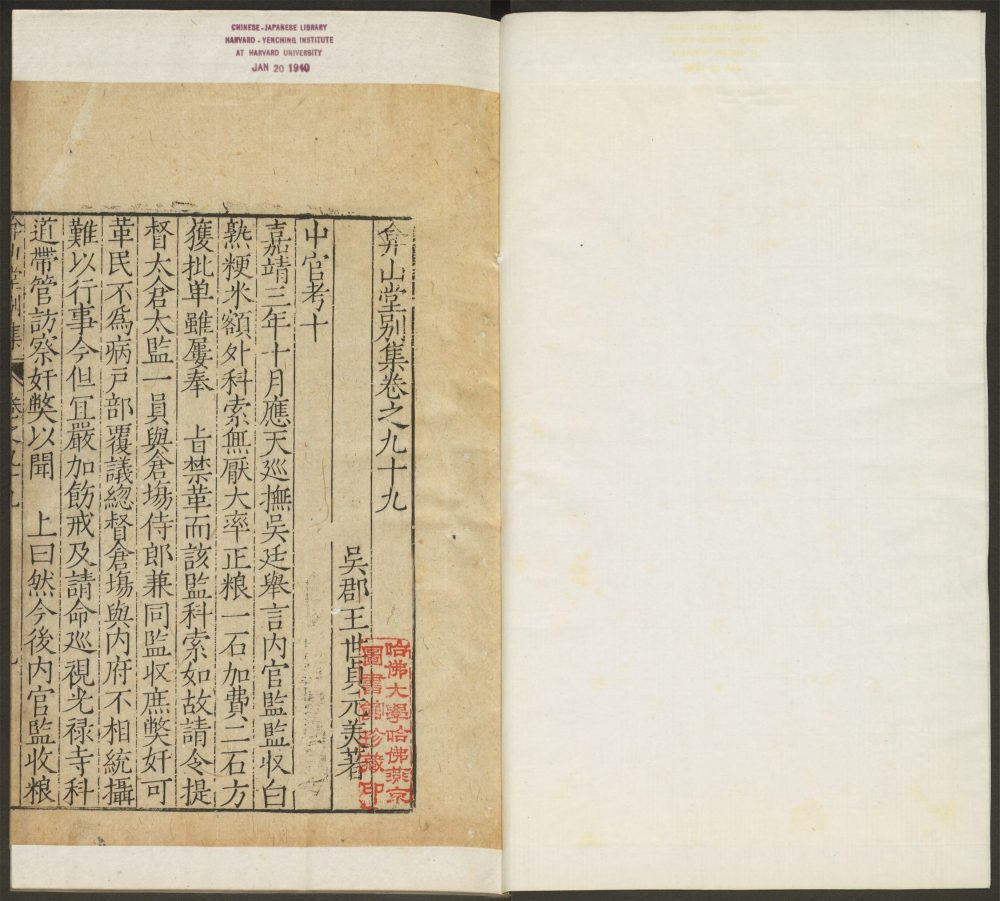 CHINESE-JAPANESE LIBRARY
HARVARD-YENCHING INSTITUTE
AT HARVARD UNIVERSITY
JAN 20 1940
弇山堂别集卷之九十九
吴郡王世貞元美著
哈佛大學哈佛燕京
圖書館珍藏印
中官考十
嘉靖三年十月應天廵撫吴廷舉言内官監監収白
熟粳米額外科索無厭大率正粮一石加費二石方
獲批单雖屢奉 㫖禁革而該監科索如故請令提
督太倉太監一員與倉塲侍郎兼同監収庶獘奸可
革民不爲病戸部覆議總督倉塲與内府不相統攝
難以行事今但冝嚴加飭戒及請命廵視光禄寺科
道帶管訪察奸獘以聞 上曰然今後内官監收粮
弇山堂别集 卷之九十九